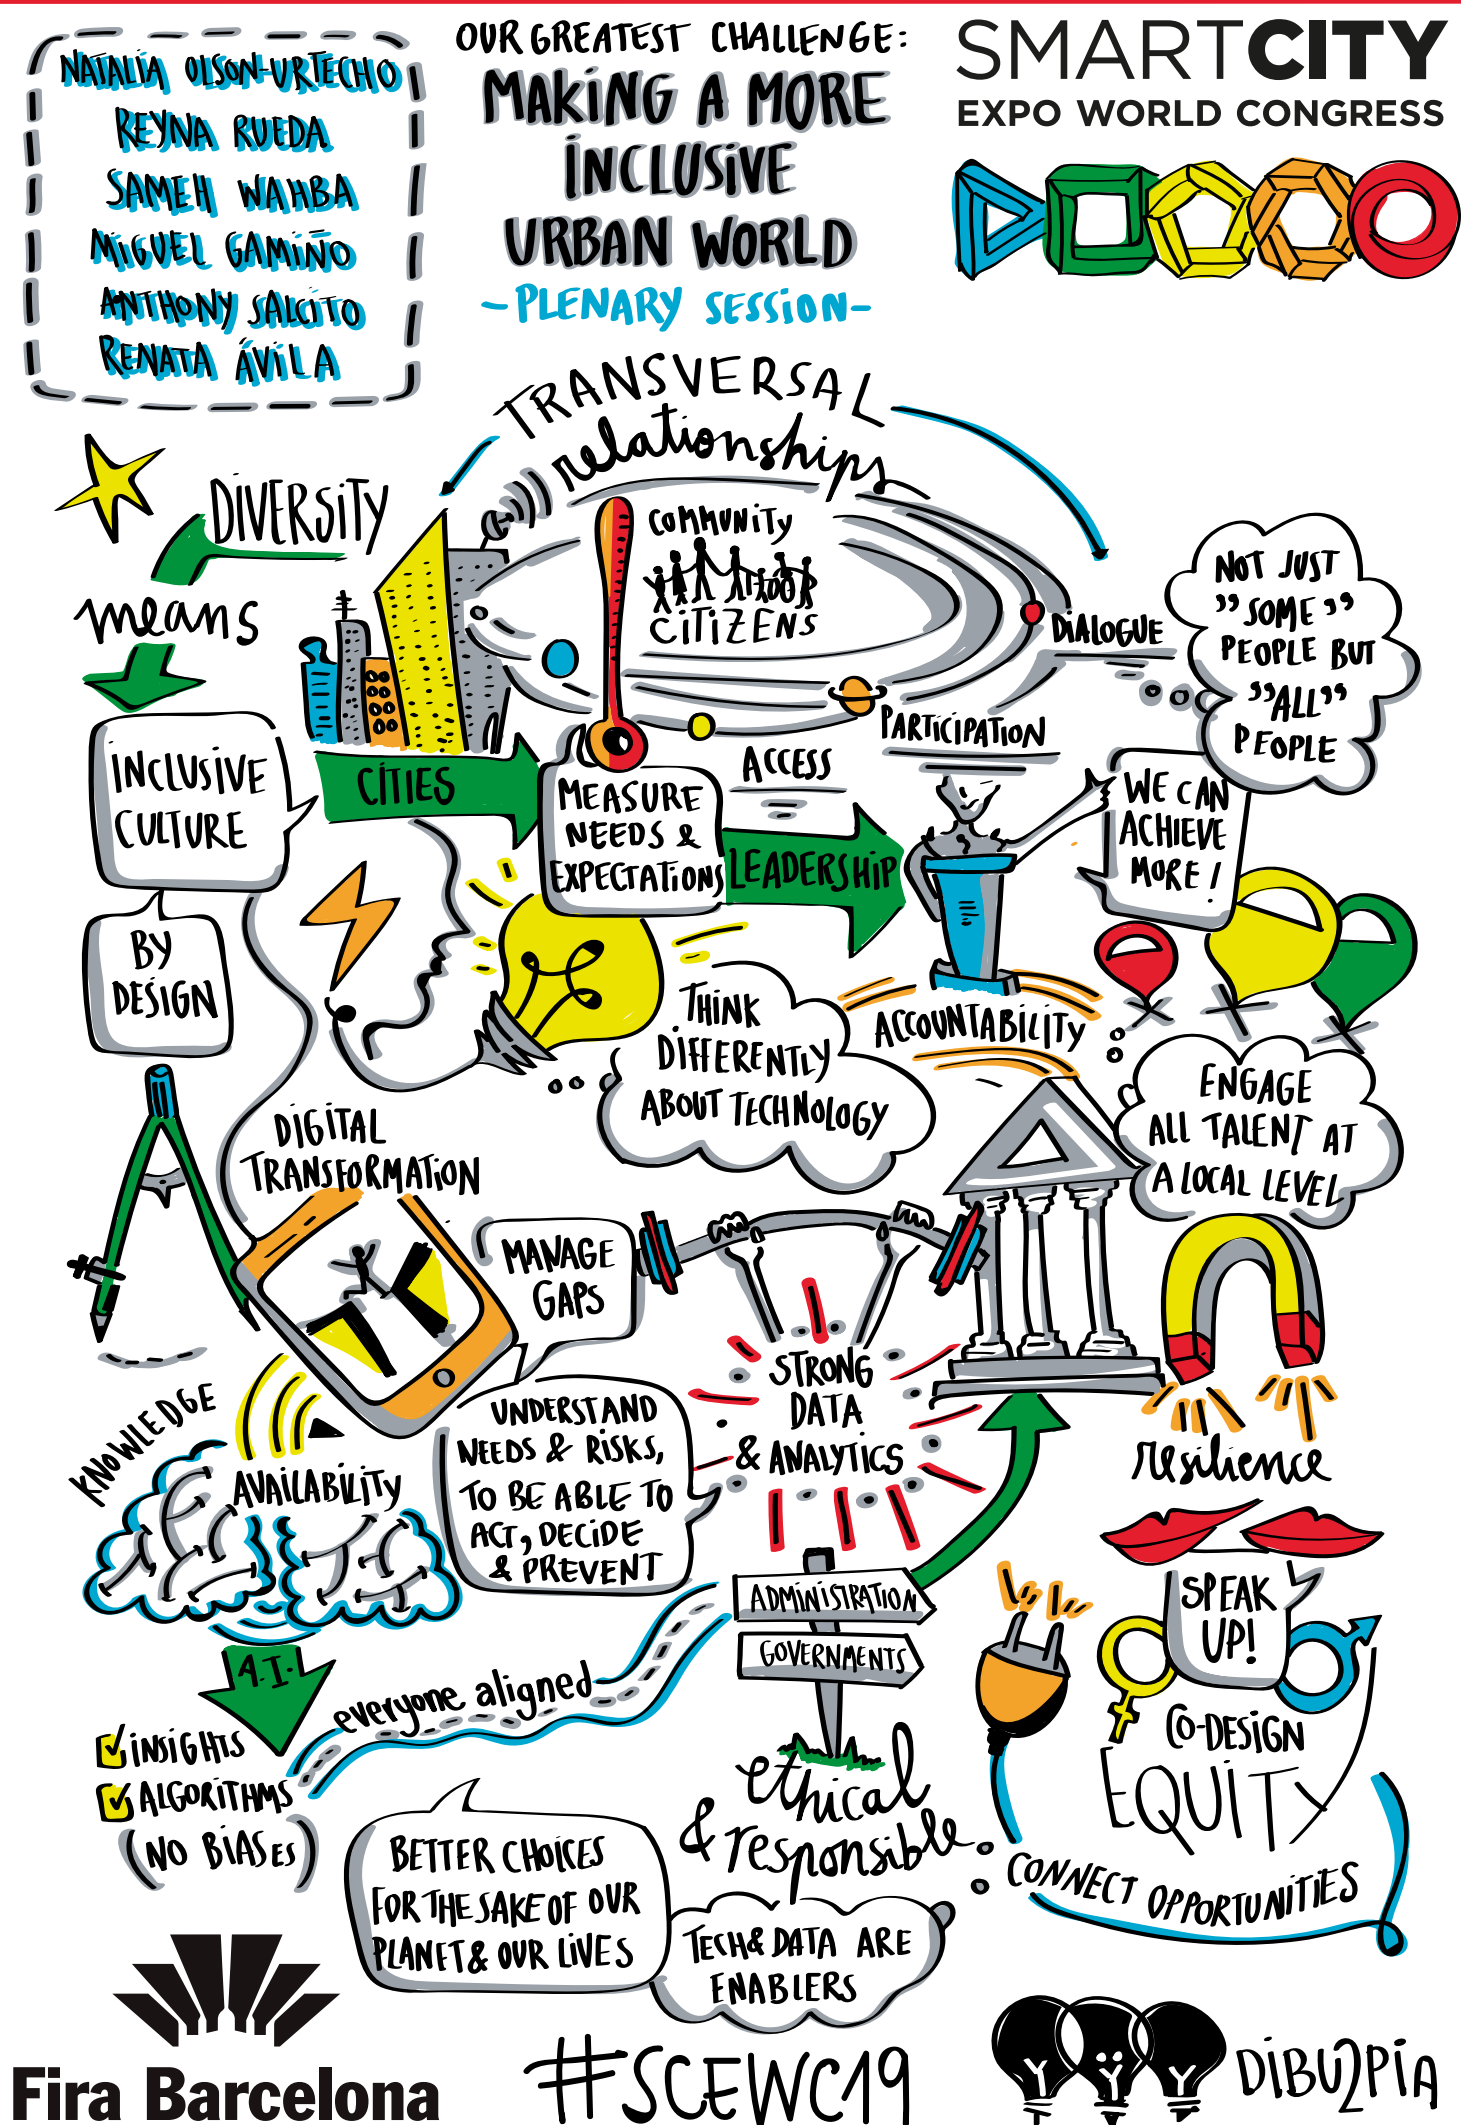 NATALIA OLSON-URTECHO
REYNA RUEDA
SAMEH WAHBA
MIGUEL GAMIÑO
ANTHONY SALCITO
RENATA ÁVILA
OUR GREATEST CHALLENGE:
MAKING A MORE
INCLUSIVE
URBAN WORLD
-PLENARY SESSION-
SMARTCITY
EXPO WORLD CONGRESS
TRANSVERSAL
relationships
DIVERSITY
means
INCLUSIVE
CULTURE
BY
DESIGN
COMMUNITY
CITIZENS
DIALOGUE
PARTICIPATION
ACCESS
NOT JUST
"SOME"
PEOPLE BUT
"ALL"
PEOPLE
CITIES
MEASURE
NEEDS &
EXPECTATIONS
LEADERSHIP
WE CAN
ACHIEVE
MORE!
THINK
DIFFERENTLY
ABOUT TECHNOLOGY
ACCOUNTABILITY
ENGAGE
ALL TALENT AT
A LOCAL LEVEL
DIGITAL
TRANSFORMATION
MANAGE
GAPS
UNDERSTAND
NEEDS & RISKS,
TO BE ABLE TO
ACT, DECIDE
& PREVENT
STRONG
DATA
& ANALYTICS
resilience
KNOWLEDGE
AVAILABILITY
A.I.
INSIGHTS
ALGORITHMS
(NO BIASES)
everyone aligned
ADMINISTRATION
GOVERNMENTS
ethical
& responsible
SPEAK
UP!
CO-DESIGN
EQUITY
CONNECT OPPORTUNITIES
BETTER CHOICES
FOR THE SAKE OF OUR
PLANET & OUR LIVES
TECH & DATA ARE
ENABLERS
Fira Barcelona
#SCEWC19
DIBU2PIA